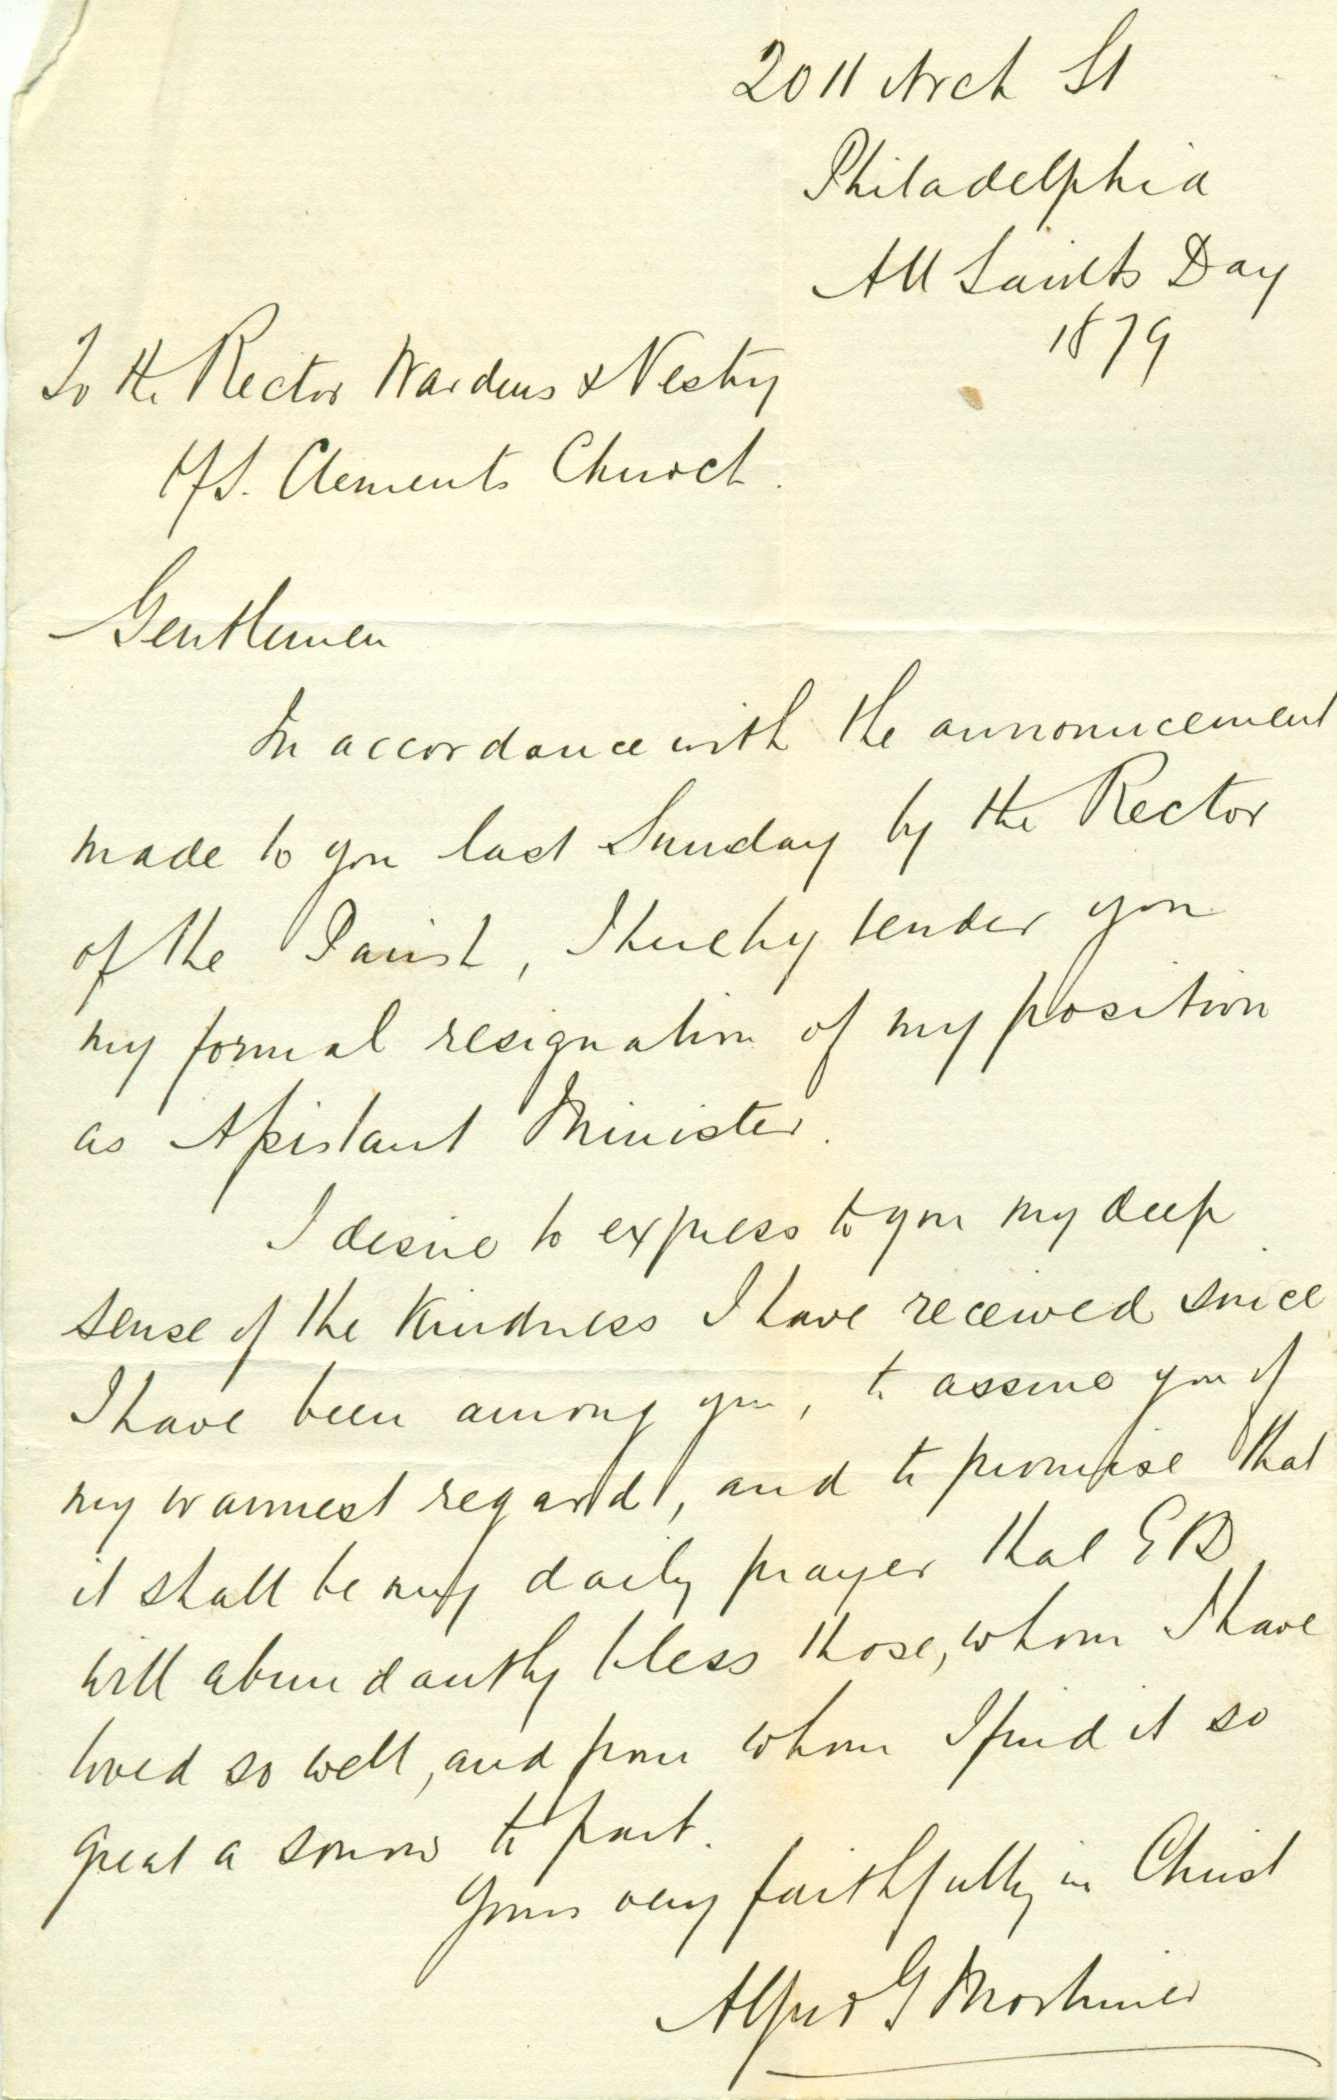 2011 Arch St
Philadelphia
All Saints Day
1879
To the Rector Wardens & Vestry
of S. Clements Church.
Gentlemen
In accordance with the announcement
made to you last Sunday by the Rector
of the Parish, I hereby tender you
my formal resignation of my position
as Assistant Minister.
I desire to express to you my deep
sense of the kindness I have received since
I have been among you, to assure you of
my warmest regard, and to promise that
it shall be my daily prayer that
will abundantly bless those, whom I have
loved so well, and from whom I find it so
great a sorrow to part.
Yours very faithfully in Christ
Alfred G Mortimer